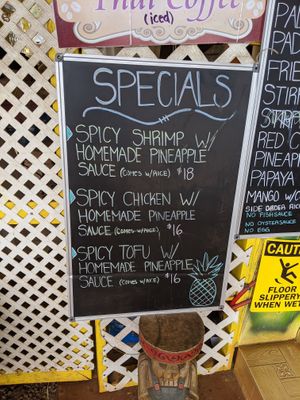 Thai Coffee
(iced)
SPECIALS
SPICY SHRIMP W/
HOMEMADE PINEAPPLE
SAUCE (COMES W/RICE) $18
SPICY CHICKEN W/
HOMEMADE PINEAPPLE
SAUCE (COMES W/RICE) $16
SPICY TOFU W/
HOMEMADE PINEAPPLE
SAUCE (COMES W/RICE) $16
PA
PAD
FRIE
STIR
RED C
PINEAP
PAPAYA
MANGO W/C
SIDE ORDER RICE
NO FISH SAUCE
NO OYSTER SAUCE
NO EGG
CAUT
FLOOR
SLIPPERY
WHEN WET